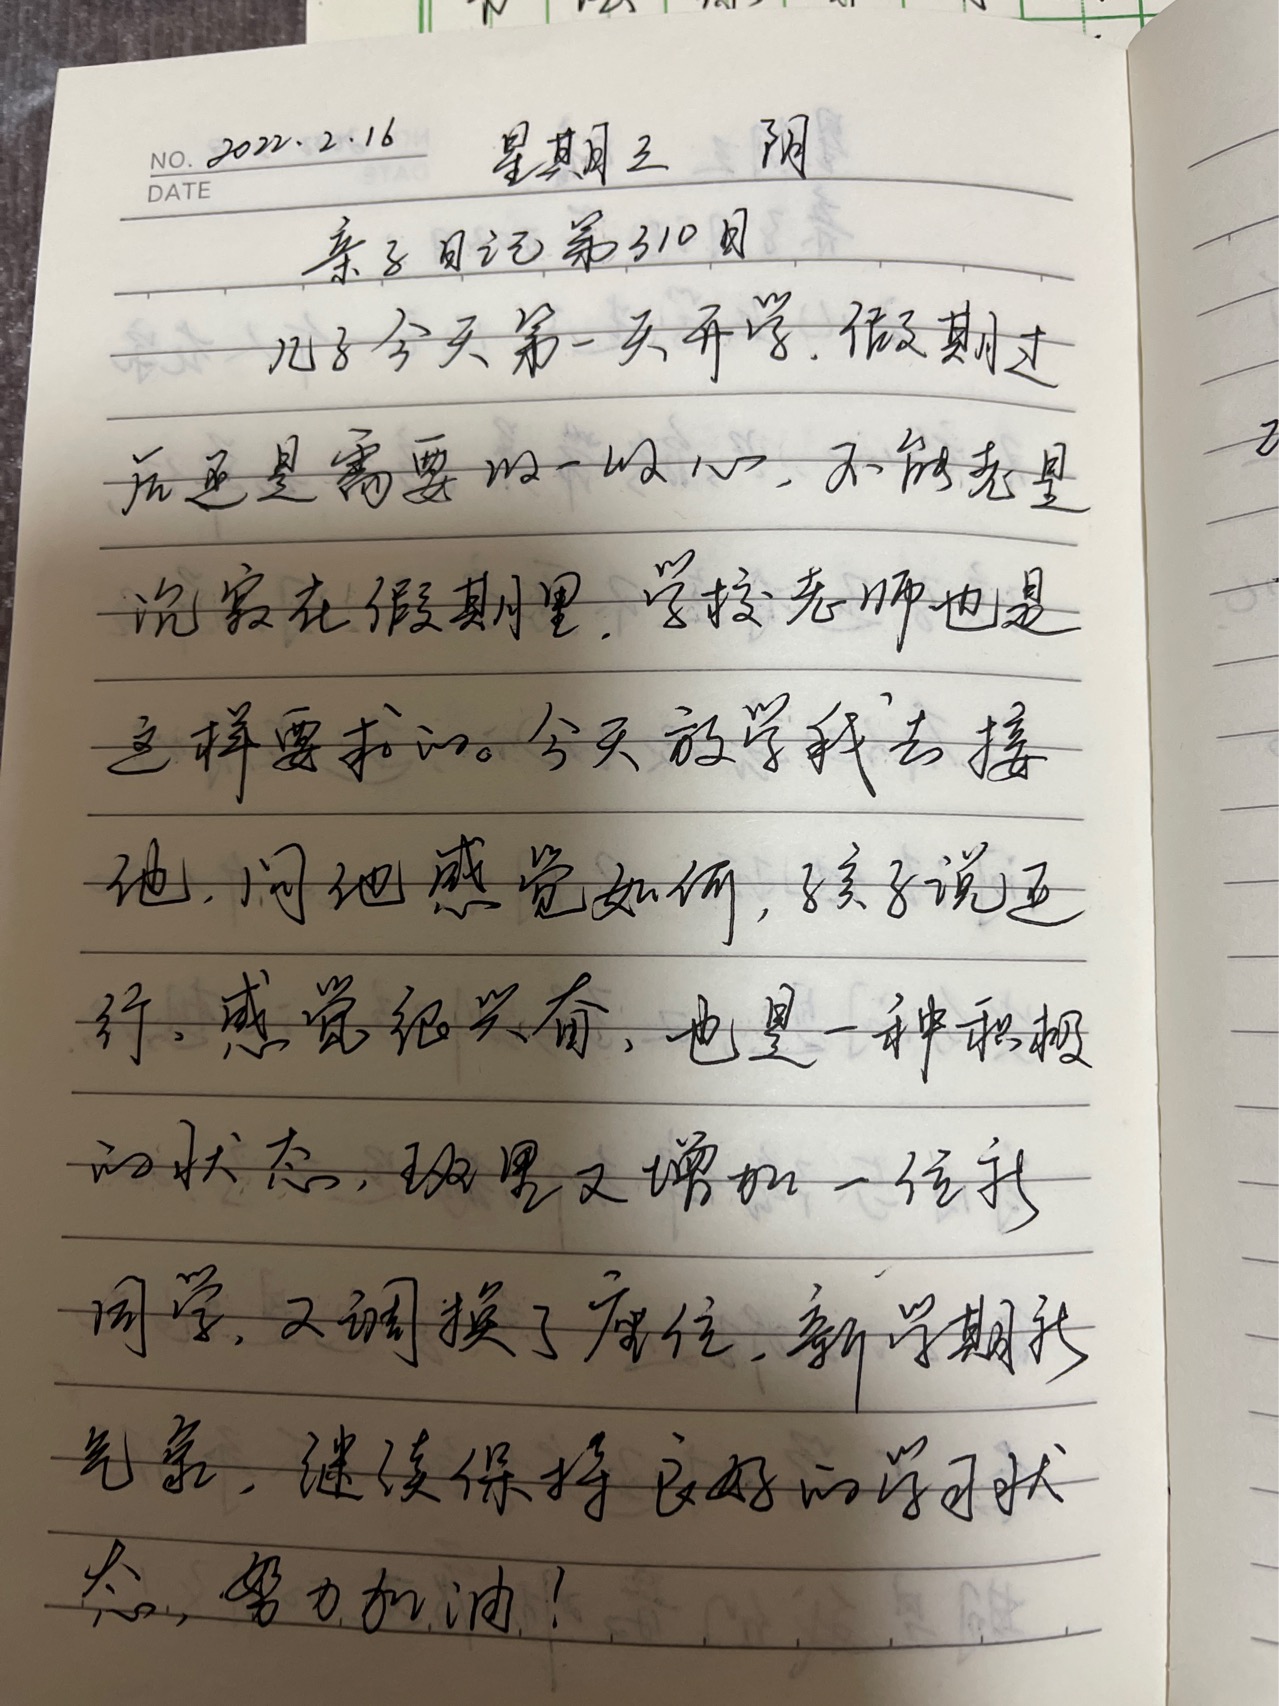 NO. 2022.2.16 星期三 阴
DATE
亲子日记第310日
儿子今天第一天开学，假期过
后还是需要收一收心，不能老是
沉寂在假期里，学校老师也是
这样要求的。今天放学我去接
他，问他感觉如何，孩子说还
行，感觉很兴奋，也是一种积极
的状态，班里又增加一位新
同学，又调换了座位，新学期新
气象，继续保持良好的学习状
态，努力加油！